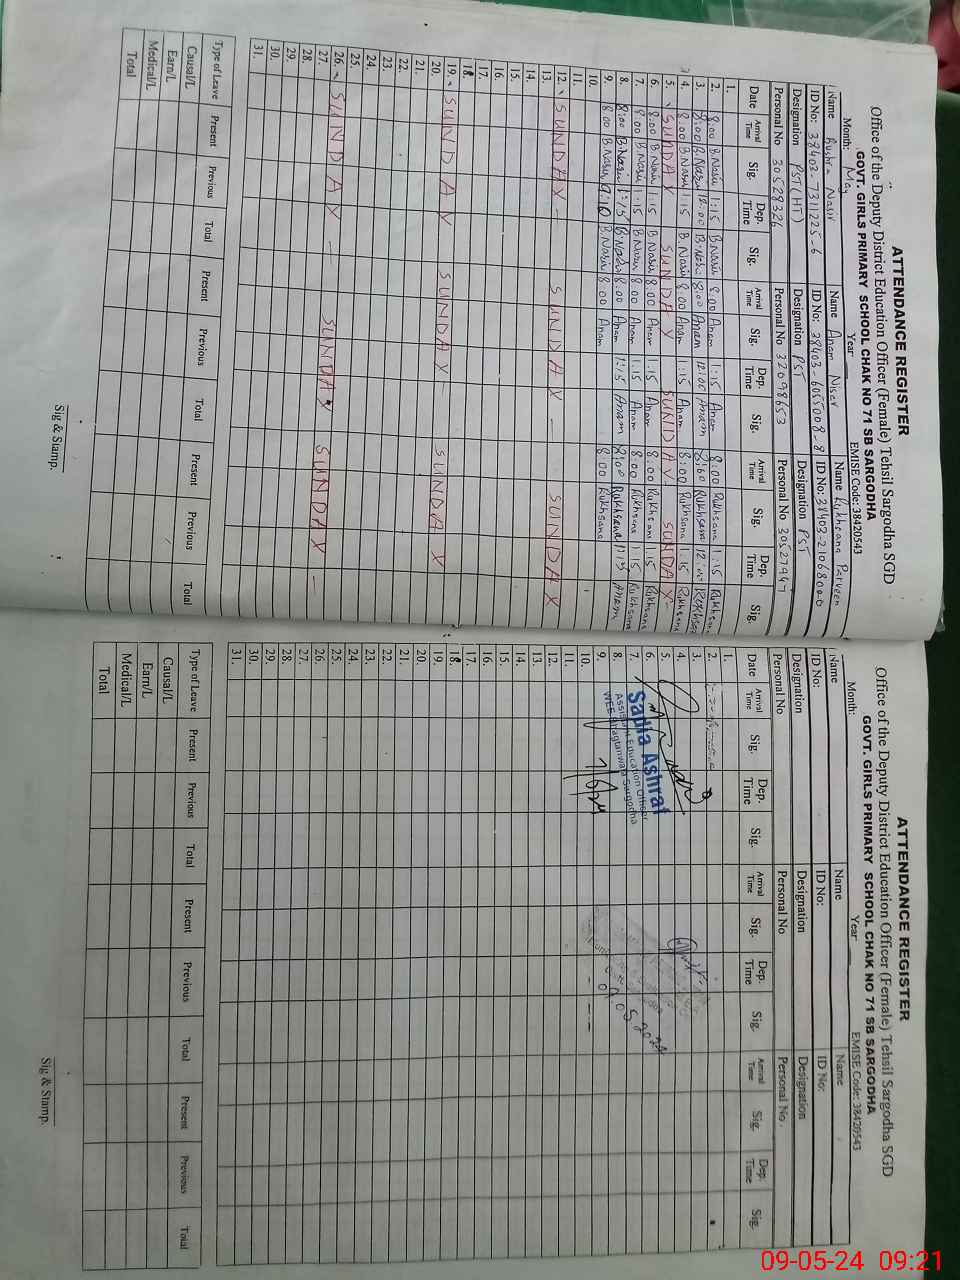 ATTENDANCE REGISTER
Office of the Deputy District Education Officer (Female) Tehsil Sargodha SGD
GOVT. GIRLS PRIMARY SCHOOL CHAK NO 71 SB SARGODHA
Month: May Year EMISE Code: 38420543
Name Bushra Nasir Name Anam Nisar Name Rukhsana Parveen
ID No: 38403-7311225-6 ID No: 38403-6055008-8 ID No: 38403-2106800-0
Designation PST (HT) Designation PST Designation PST
Personal No 30529326 Personal No 32098653 Personal No 30527947
Date Arrival Time Sig. Dep. Time Sig. Arrival Time Sig. Dep. Time Sig. Arrival Time Sig. Dep. Time Sig.
1.
2. 8:00 B.Nasir 1:15 B.Nasir 8:00 Anam 1:15 Anam 8:00 Rukhsana 1:15 Rukhsana
3. 8:00 B.Nasir 12:00 B.Nasir 8:00 Anam 12:00 Anam 8:00 Rukhsana 12:00 Rukhsana
4. 8:00 B.Nasir 1:15 B.Nasir 8:00 Anam 1:15 Anam 8:00 Rukhsana 1:15 Rukhsana
5. SUNDAY SUNDAY SUNDAY SUNDAY
6. 8:00 B.Nasir 1:15 B.Nasir 8:00 Anam 1:15 Anam 8:00 Rukhsana 1:15 Rukhsana
7. 8:00 B.Nasir 1:15 B.Nasir 8:00 Anam 1:15 Anam 8:00 Rukhsana 1:15 Rukhsana
8. 8:00 B.Nasir 1:15 B.Nasir 8:00 Anam 1:15 Anam 8:00 Rukhsana 1:15 Anam
9. 8:00 B.Nasir 9:10 B.Nasir 8:00 Anam 8:00 Rukhsana
10.
11.
12. SUNDAY SUNDAY SUNDAY
13.
14.
15.
16.
17.
18.
19. SUNDAY SUNDAY SUNDAY
20.
21.
22.
23.
24.
25.
26. SUNDAY SUNDAY SUNDAY
27.
28.
29.
30.
31.
Type of Leave Present Previous Total Present Previous Total Present Previous Total
Causal/L
Earn/L
Medical/L
Total
Sig & Stamp.
ATTENDANCE REGISTER
Office of the Deputy District Education Officer (Female) Tehsil Sargodha SGD
GOVT. GIRLS PRIMARY SCHOOL CHAK NO 71 SB SARGODHA
Month: Year EMISE Code: 38420543
Name Name Name
ID No: ID No: ID No:
Designation Designation Designation
Personal No Personal No Personal No
Date Arrival Time Sig. Dep. Time Sig. Arrival Time Sig. Dep. Time Sig. Arrival Time Sig. Dep. Time Sig.
1.
2.
3.
4.
5.
6.
7.
8.
9.
10.
11.
12.
13.
14.
15.
16.
17.
18.
19.
20.
21.
22.
23.
24.
25.
26.
27.
28.
29.
30.
31.
Sadia Ashraf
Assistant Education Officer
7/5/24
Type of Leave Present Previous Total Present Previous Total Present Previous Total
Causal/L
Earn/L
Medical/L
Total
Sig & Stamp.
09-05-24 09:21